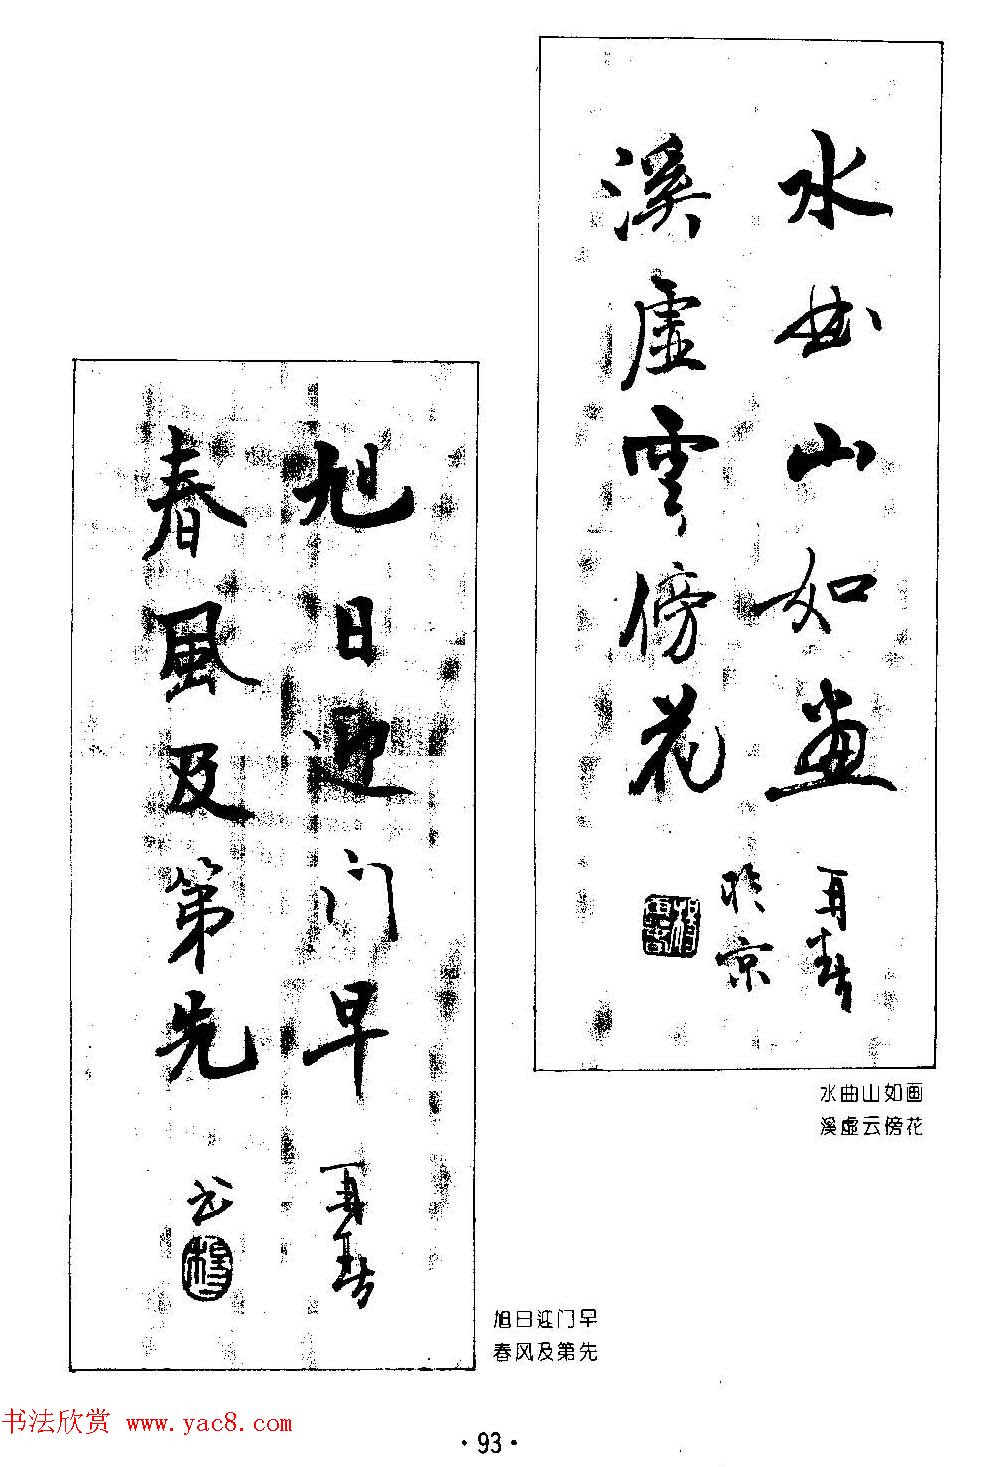 水曲山如畫
溪虛雲傍花
於京
水曲山如画
溪虚云傍花
旭日迎门早
春風及第先
书
旭日迎门早
春风及第先
书法欣赏 www.yac8.com
·93·